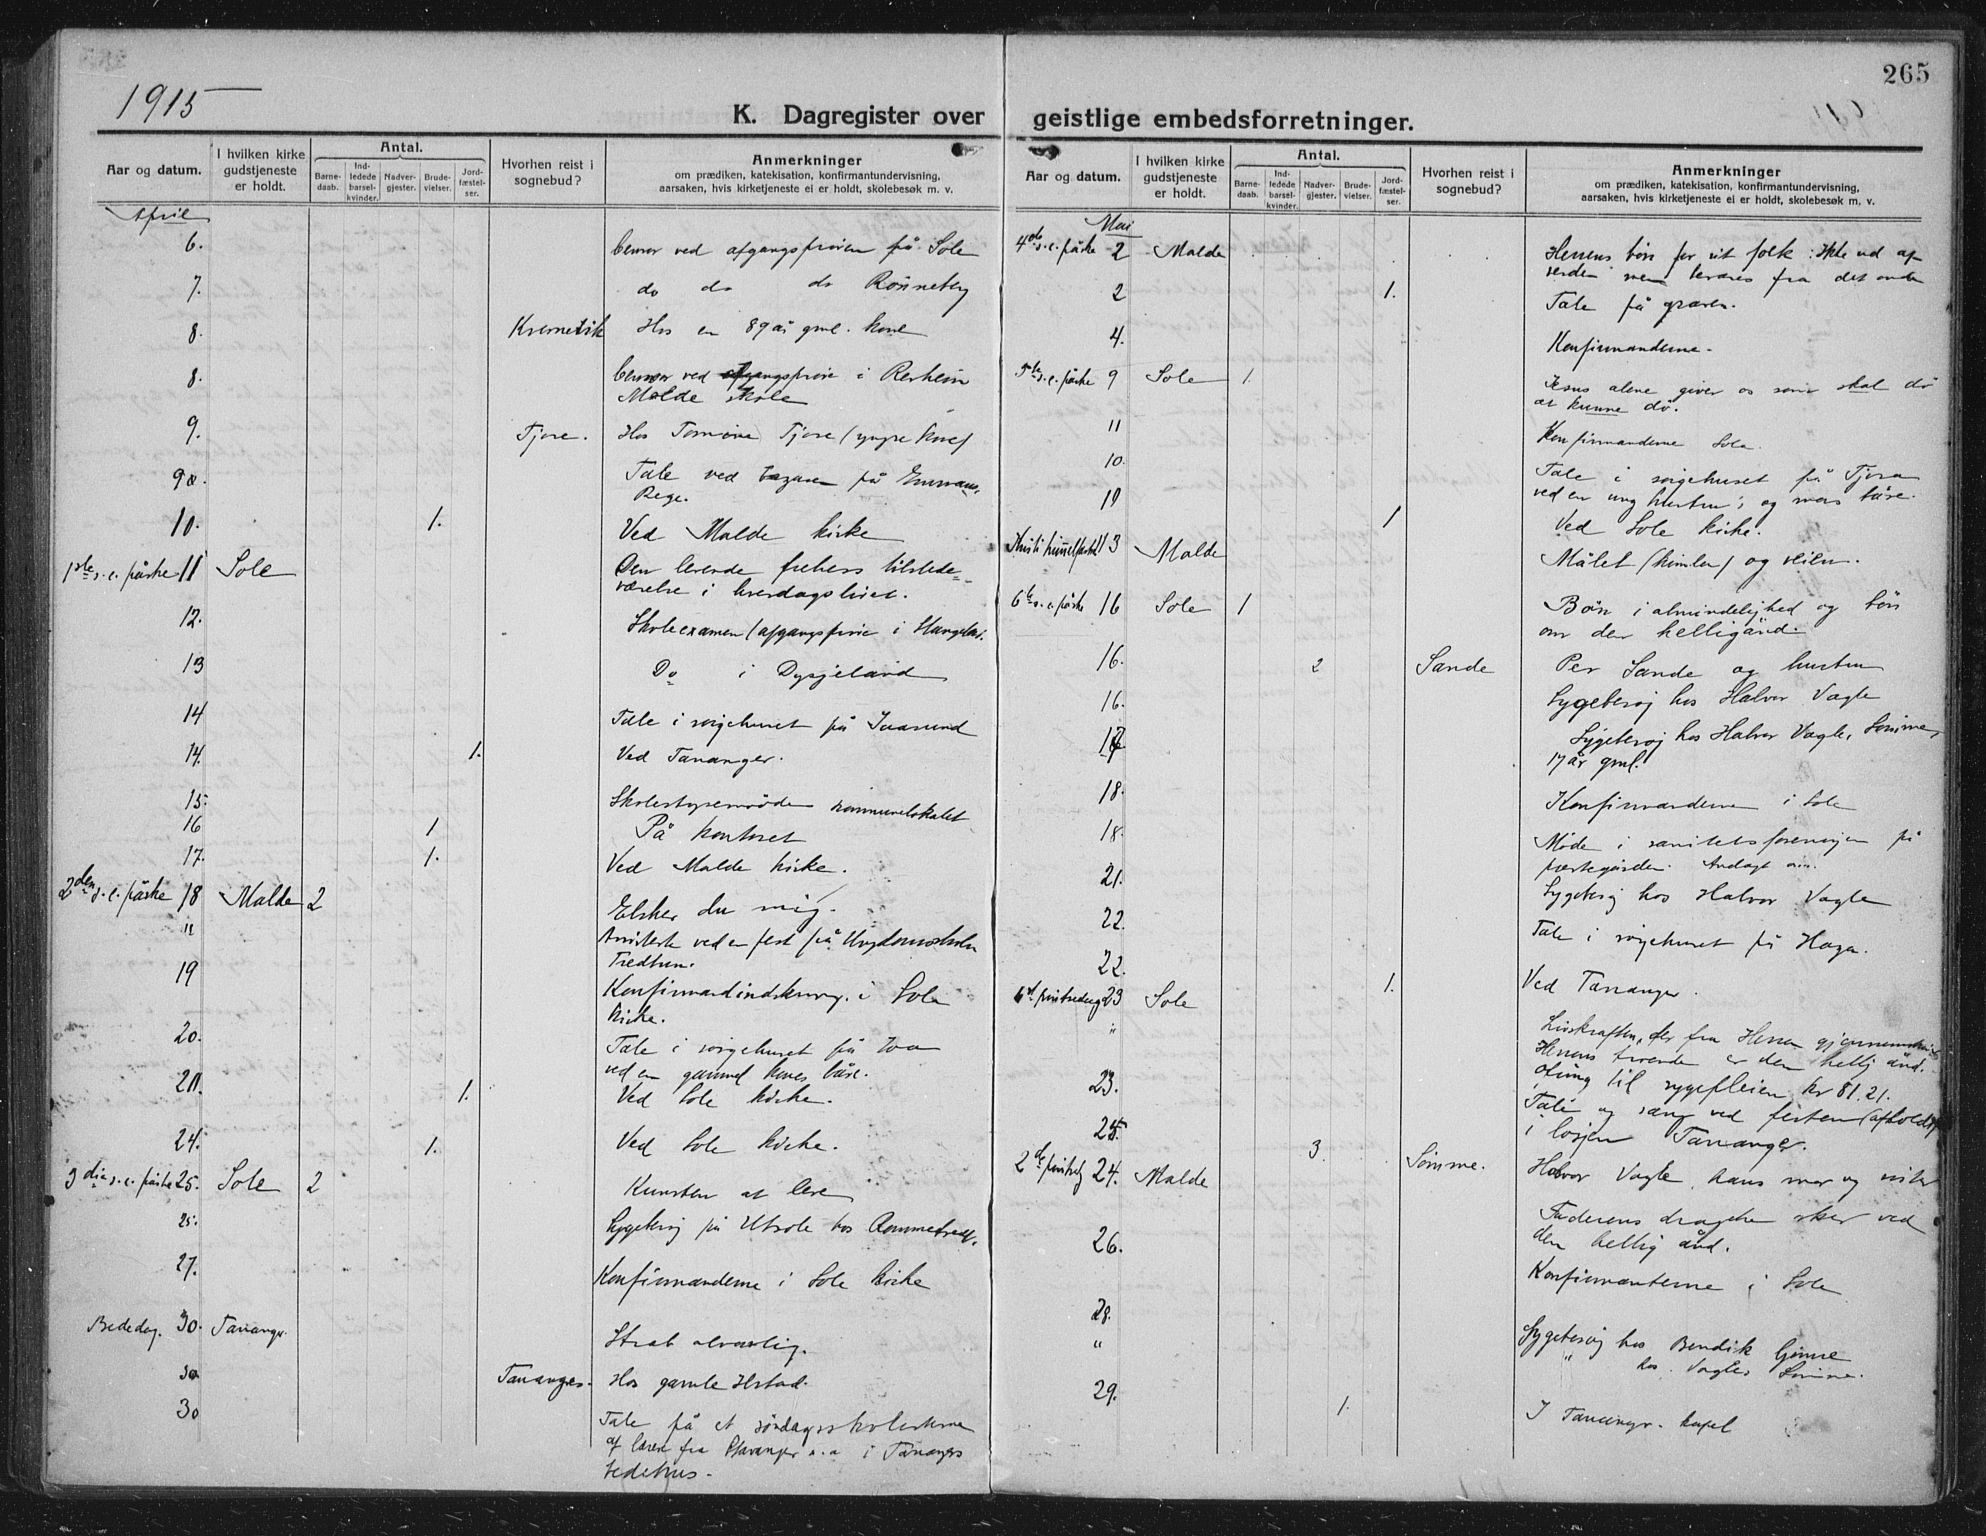 1915
K. Dagregister over
Aar og datum.
I hvilken kirke gudstjeneste er holdt.
Antal.
Barne-daab.
Ind-ledede barsel-kvinder.
Nadver-gjester.
Brude-vielser.
Jord-fæstel-ser.
Hvorhen reist i sognebud?
Anmerkninger
om prædiken, katekisation, konfirmantundervisning,
aarsaken, hvis kirketjeneste ei er holdt, skolebesøk m. v.
April
6. ved afgangsprøven på Sole
7. do do do Rönneberg
8. Hos en 89 år gml. kone
8. ved afgangsprøve i
Malde skole
9. Tjore. Hos Tjore (yngre kone)
9. Tale ved på Emmaus,
Rege.
10. 1. Ved Malde kirke
1ste s. e. påske 11 Sole Den levende frelsers tilstede=
værelse i hverdagslivet.
12. Skoleexamen (afgangsprøve i
13 Do i Dysjeland
14 Tale i sørgehuset på Jaasund
14. 1. Ved Tananger.
15. Skolestyremöde kommunelokalet
16 1 På kontoret
17. 1. Ved Malde kirke.
2den s. e. påske 18 Malde 2 Elsker du mig.
" ved en fest på Ungdomsskolen
Tredheim.
19 i Sole
kirke.
20. Tale i sørgehuset på
ved en gammel kones båre.
21. 1. Ved Sole kirke.
24. 1. Ved Sole kirke.
3die s. e. påske 25. Sole 2 Kunsten at leve
25. Sygebesøg på Utsole hos
27. Konfirmanderne i Sole kirke
Bededag. 30. Tananger. Straf alvorlig.
30. Tananger. Hos gamle
30 Tale på et
af lærer fra Stavanger i Tanangers
bedehus.
265
geistlige embedsforretninger.
Aar og datum.
I hvilken kirke gudstjeneste er holdt.
Antal.
Barne-daab.
Ind-ledede barsel-kvinder.
Nadver-gjester.
Brude-vielser.
Jord-fæstel-ser.
Hvorhen reist i sognebud?
Anmerkninger
om prædiken, katekisation, konfirmantundervisning,
aarsaken, hvis kirketjeneste ei er holdt, skolebesøk m. v.
Mai
4de s. e. påske 2 Malde Herrens bön for sit folk: Ikke ud af
verden men bevares fra det onde
2 1. Tale på graven.
4. Konfirmanderne.
5te s. e. påske 9 Sole 1. Jesus alene giver os som skal dö
at kunne dö.
11 Konfirmanderne Sole.
10. Tale i sørgehuset på Tjora
ved en ung hustru, og mors båre.
10 1 Ved Sole kirke.
Kristi himmelfartsd 13 Malde Målet (himlen) og veien.
6te s. e. påske 16 Sole 1 Bön i almindelighed og bön
om den helligånd.
16. 2 Sande Per Sande og hustru
16. Sygebesøg hos Halvor Vagle
17 Sygebesøg hos Halvor Vagle, Sømme,
17 år gml.
18. Konfirmanderne i Sole
18. Möde i sanitetsforeningen på
præstegården. Andagt
21. Sygebesøg hos Halvor Vagle
22. Tale i sørgehuset på Haga.
22. 1. Ved Tananger.
1st pintsedag 23 Sole
" Livskraften, der fra Herren
Herrens troende er den hellig ånd.
Ofring til sygepleien kr 81.21.
23. Tale og sang ved festen (afholds)
25. i losjen Tananger.
2de pintsdg 24. Malde 3. Sømme. Halvor Vagle, hans mor og
Faderens dragelse sker ved
den hellig ånd.
26. Konfirmanterne i Sole
28. Sygebesøg hos Bendik Gimre
" " hos Vagle, Sømme.
29. 1. I Tananger kapel